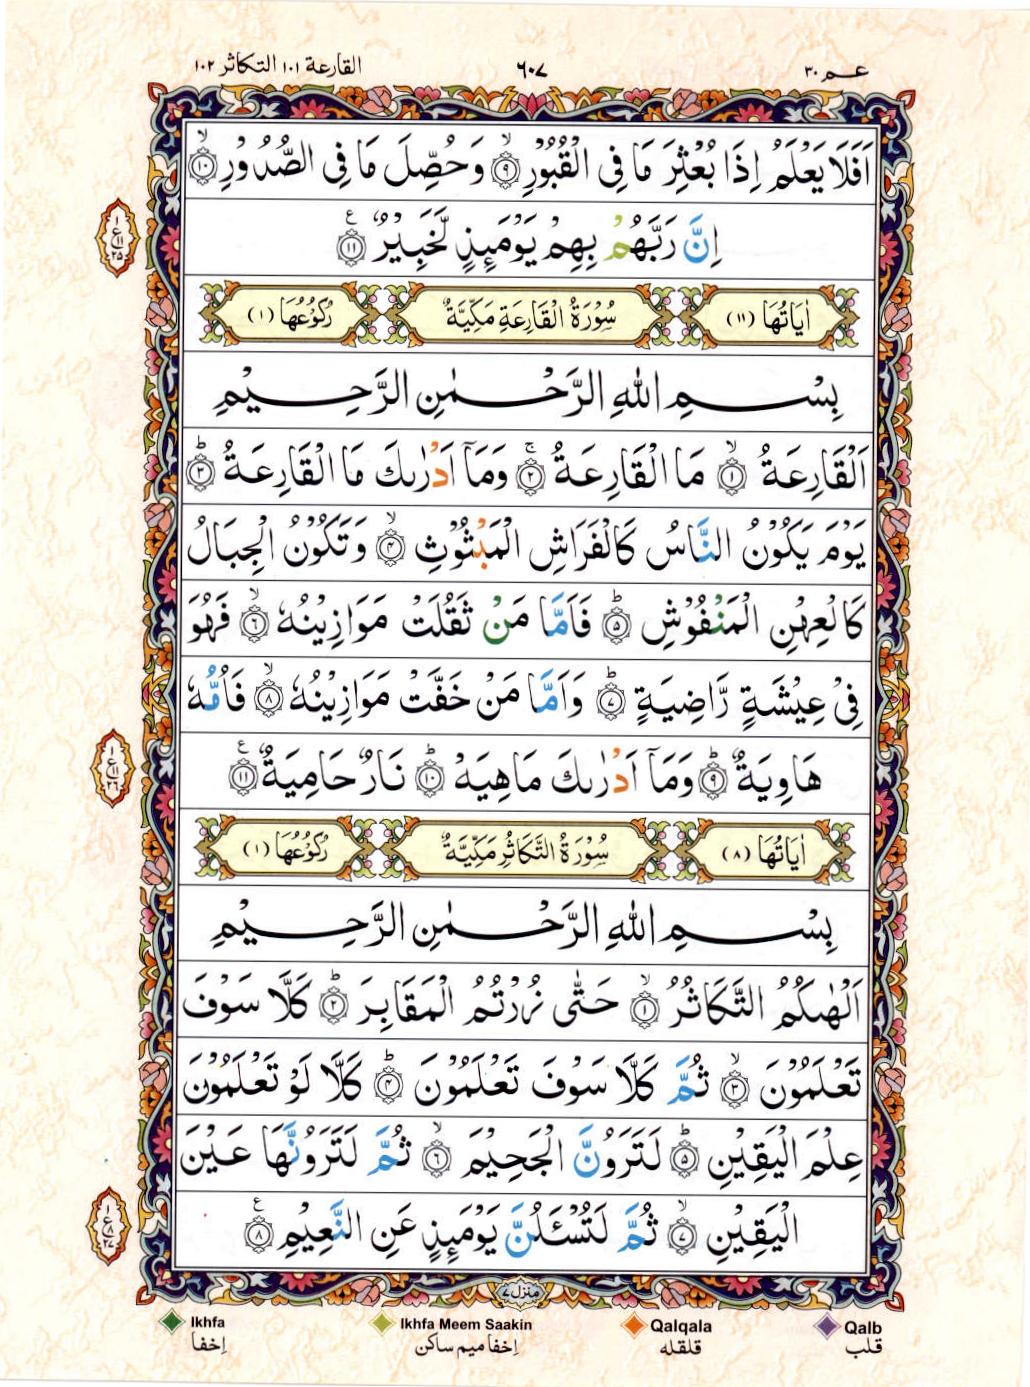 عـم ٣٠
٦٠٧
القارعة ١٠١ التكاثر ١٠٢
اَفَلَا يَعْلَمُ اِذَا بُعْثِرَ مَا فِى الْقُبُوْرِ ۙ‏﴿۹﴾ وَحُصِّلَ مَا فِى الصُّدُوْرِ ۙ‏﴿۱۰﴾
اِنَّ رَبَّهُمْ بِهِمْ يَوْمَٮِٕذٍ لَّخَبِيْرٌ ﴿۱۱﴾ ع
ع ١ ١١ ٢٥
اٰيَاتُهَا (١١)
سُوْرَةُ الْقَارِعَةِ مَكِّيَّةٌ
رُكُوْعُهَا (١)
بِسْمِ اللهِ الرَّحْمٰنِ الرَّحِيْمِ
اَلْقَارِعَةُ ۙ‏﴿۱﴾ مَا الْقَارِعَةُ ۚ‏﴿۲﴾ وَمَاۤ اَدْرٰىكَ مَا الْقَارِعَةُ ؕ‏﴿۳﴾
يَوْمَ يَكُوْنُ النَّاسُ كَالْفَرَاشِ الْمَبْثُوْثِ ۙ‏﴿۴﴾ وَتَكُوْنُ الْجِبَالُ
كَالْعِهْنِ الْمَنْفُوْشِ ؕ‏﴿۵﴾ فَاَمَّا مَنْ ثَقُلَتْ مَوَازِيْنُهٗ ۙ‏﴿۶﴾ فَهُوَ
فِىْ عِيْشَةٍ رَّاضِيَةٍ ؕ‏﴿۷﴾ وَاَمَّا مَنْ خَفَّتْ مَوَازِيْنُهٗ ۙ‏﴿۸﴾ فَاُمُّهٗ
هَاوِيَةٌ ؕ‏﴿۹﴾ وَمَاۤ اَدْرٰىكَ مَاهِيَهْ ؕ‏﴿۱۰﴾ نَارٌ حَامِيَةٌ ﴿۱۱﴾ ع
ع ١ ١١ ٢٦
اٰيَاتُهَا (٨)
سُوْرَةُ التَّكَاثُرِ مَكِّيَّةٌ
رُكُوْعُهَا (١)
بِسْمِ اللهِ الرَّحْمٰنِ الرَّحِيْمِ
اَلْهٰٮكُمُ التَّكَاثُرُ ۙ‏﴿۱﴾ حَتّٰى زُرْتُمُ الْمَقَابِرَ ؕ‏﴿۲﴾ كَلَّا سَوْفَ
تَعْلَمُوْنَ ۙ‏﴿۳﴾ ثُمَّ كَلَّا سَوْفَ تَعْلَمُوْنَ ؕ‏﴿۴﴾ كَلَّا لَوْ تَعْلَمُوْنَ
عِلْمَ الْيَقِيْنِ ؕ‏﴿۵﴾ لَتَرَوُنَّ الْجَحِيْمَ ۙ‏﴿۶﴾ ثُمَّ لَتَرَوُنَّهَا عَيْنَ
الْيَقِيْنِ ۙ‏﴿۷﴾ ثُمَّ لَتُسْـَٔلُنَّ يَوْمَٮِٕذٍ عَنِ النَّعِيْمِ ﴿۸﴾ ع
ع ١ ٨ ٢٧
منزل ٧
Ikhfa Ikhfa Meem Saakin Qalqala Qalb
إخفا إخفا ميم ساكن قلقله قلب